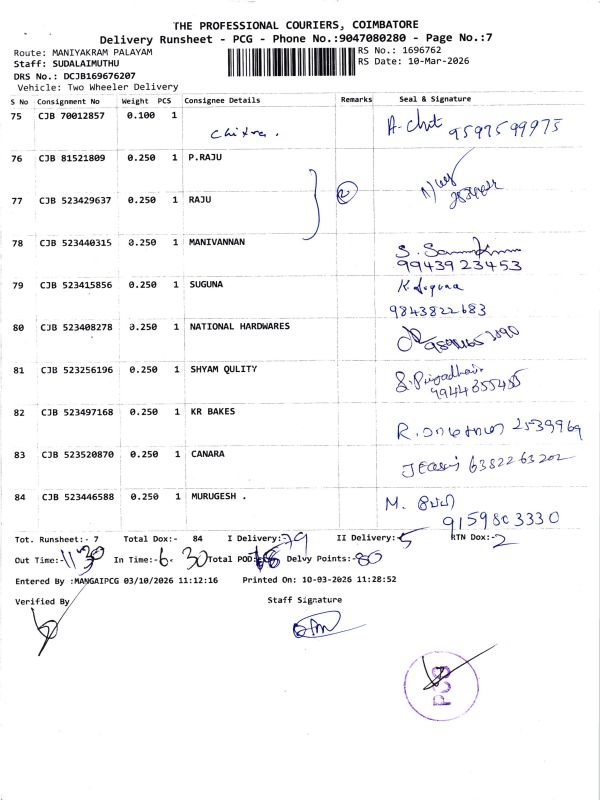 THE PROFESSIONAL COURIERS, COIMBATORE
Delivery Runsheet - PCG - Phone No.:9047080280 - Page No.:7
Route: MANIYAKRAM PALAYAM
RS No.: 1696762
Staff: SUDALAIMUTHU
RS Date: 10-Mar-2026
DRS No.: DCJB169676207
Vehicle: Two Wheeler Delivery
S No Consignment No Weight PCS Consignee Details Remarks Seal & Signature
75 CJB 70012857 0.100 1 Chitra. A-Chit 9597599975
76 CJB 81521809 0.250 1 P.RAJU
77 CJB 523429637 0.250 1 RAJU
78 CJB 523440315 0.250 1 MANIVANNAN
9943923453
79 CJB 523415856 0.250 1 SUGUNA K. Suguna
9843822683
80 CJB 523408278 0.250 1 NATIONAL HARDWARES
81 CJB 523256196 0.250 1 SHYAM QULITY
82 CJB 523497168 0.250 1 KR BAKES
R. 2539969
83 CJB 523520870 0.250 1 CANARA 6382263202
84 CJB 523446588 0.250 1 MURUGESH . M.
9159803330
Tot. Runsheet:- 7 Total Dox:- 84 I Delivery:-79 II Delivery:-5 RTN Dox:-2
Out Time:-11 30 In Time:-6. 30 Total POD:- Delvy Points:-80
Entered By :MANGAIPCG 03/10/2026 11:12:16 Printed On: 10-03-2026 11:28:52
Verified By Staff Signature
PCG